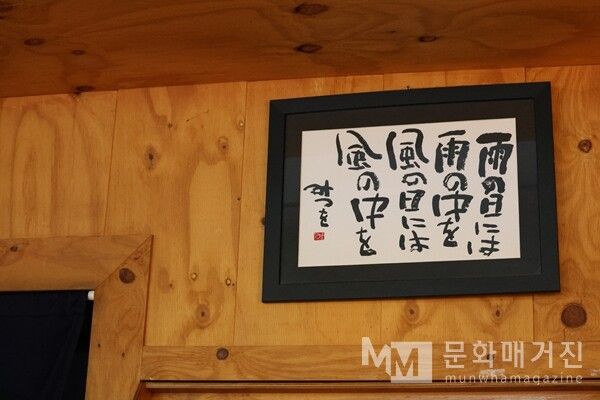 雨の日には
雨の中を
風の日には
風の中を
みつを
MM 문화매거진
munwhamagazine